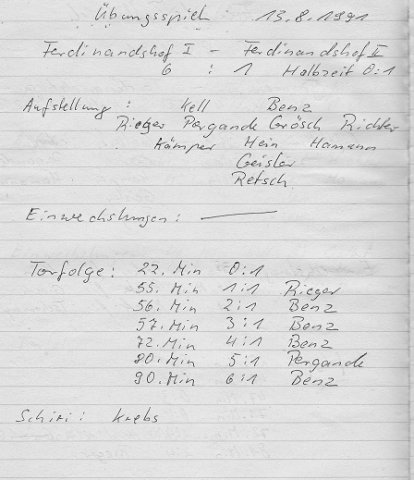 Übungsspiel : 13.8.1991
Ferdinandshof I - Ferdinandshof II
6 : 1 Halbzeit 0:1
Aufstellung : Kell Benz
Rieger Pergande Grösch Richter
Kämper Hein Hamann
Geisler
Retsch
Einwechslungen : —
Torfolge : 22. Min 0:1
55. Min 1:1 Rieger
56. Min 2:1 Benz
57. Min 3:1 Benz
72. Min 4:1 Benz
80. Min 5:1 Pergande
90. Min 6:1 Benz
Schiri : Krebs